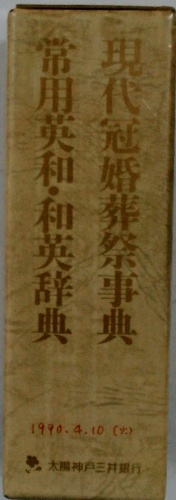 現代冠婚葬祭事典
常用英和・和英辞典
1990.4.10 (火)
太陽神戸三井銀行